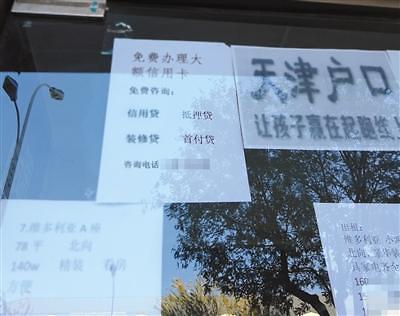 免费办理大
额信用卡
免费咨询：
信用贷 抵押贷
装修贷 首付贷
咨询电话
天津户口
让孩子赢在起跑线上
7.维多利亚 A 座
78 平 北向
140w 精装 看房
方便
出租：
维多利亚
北向，豪华装
具家电齐全